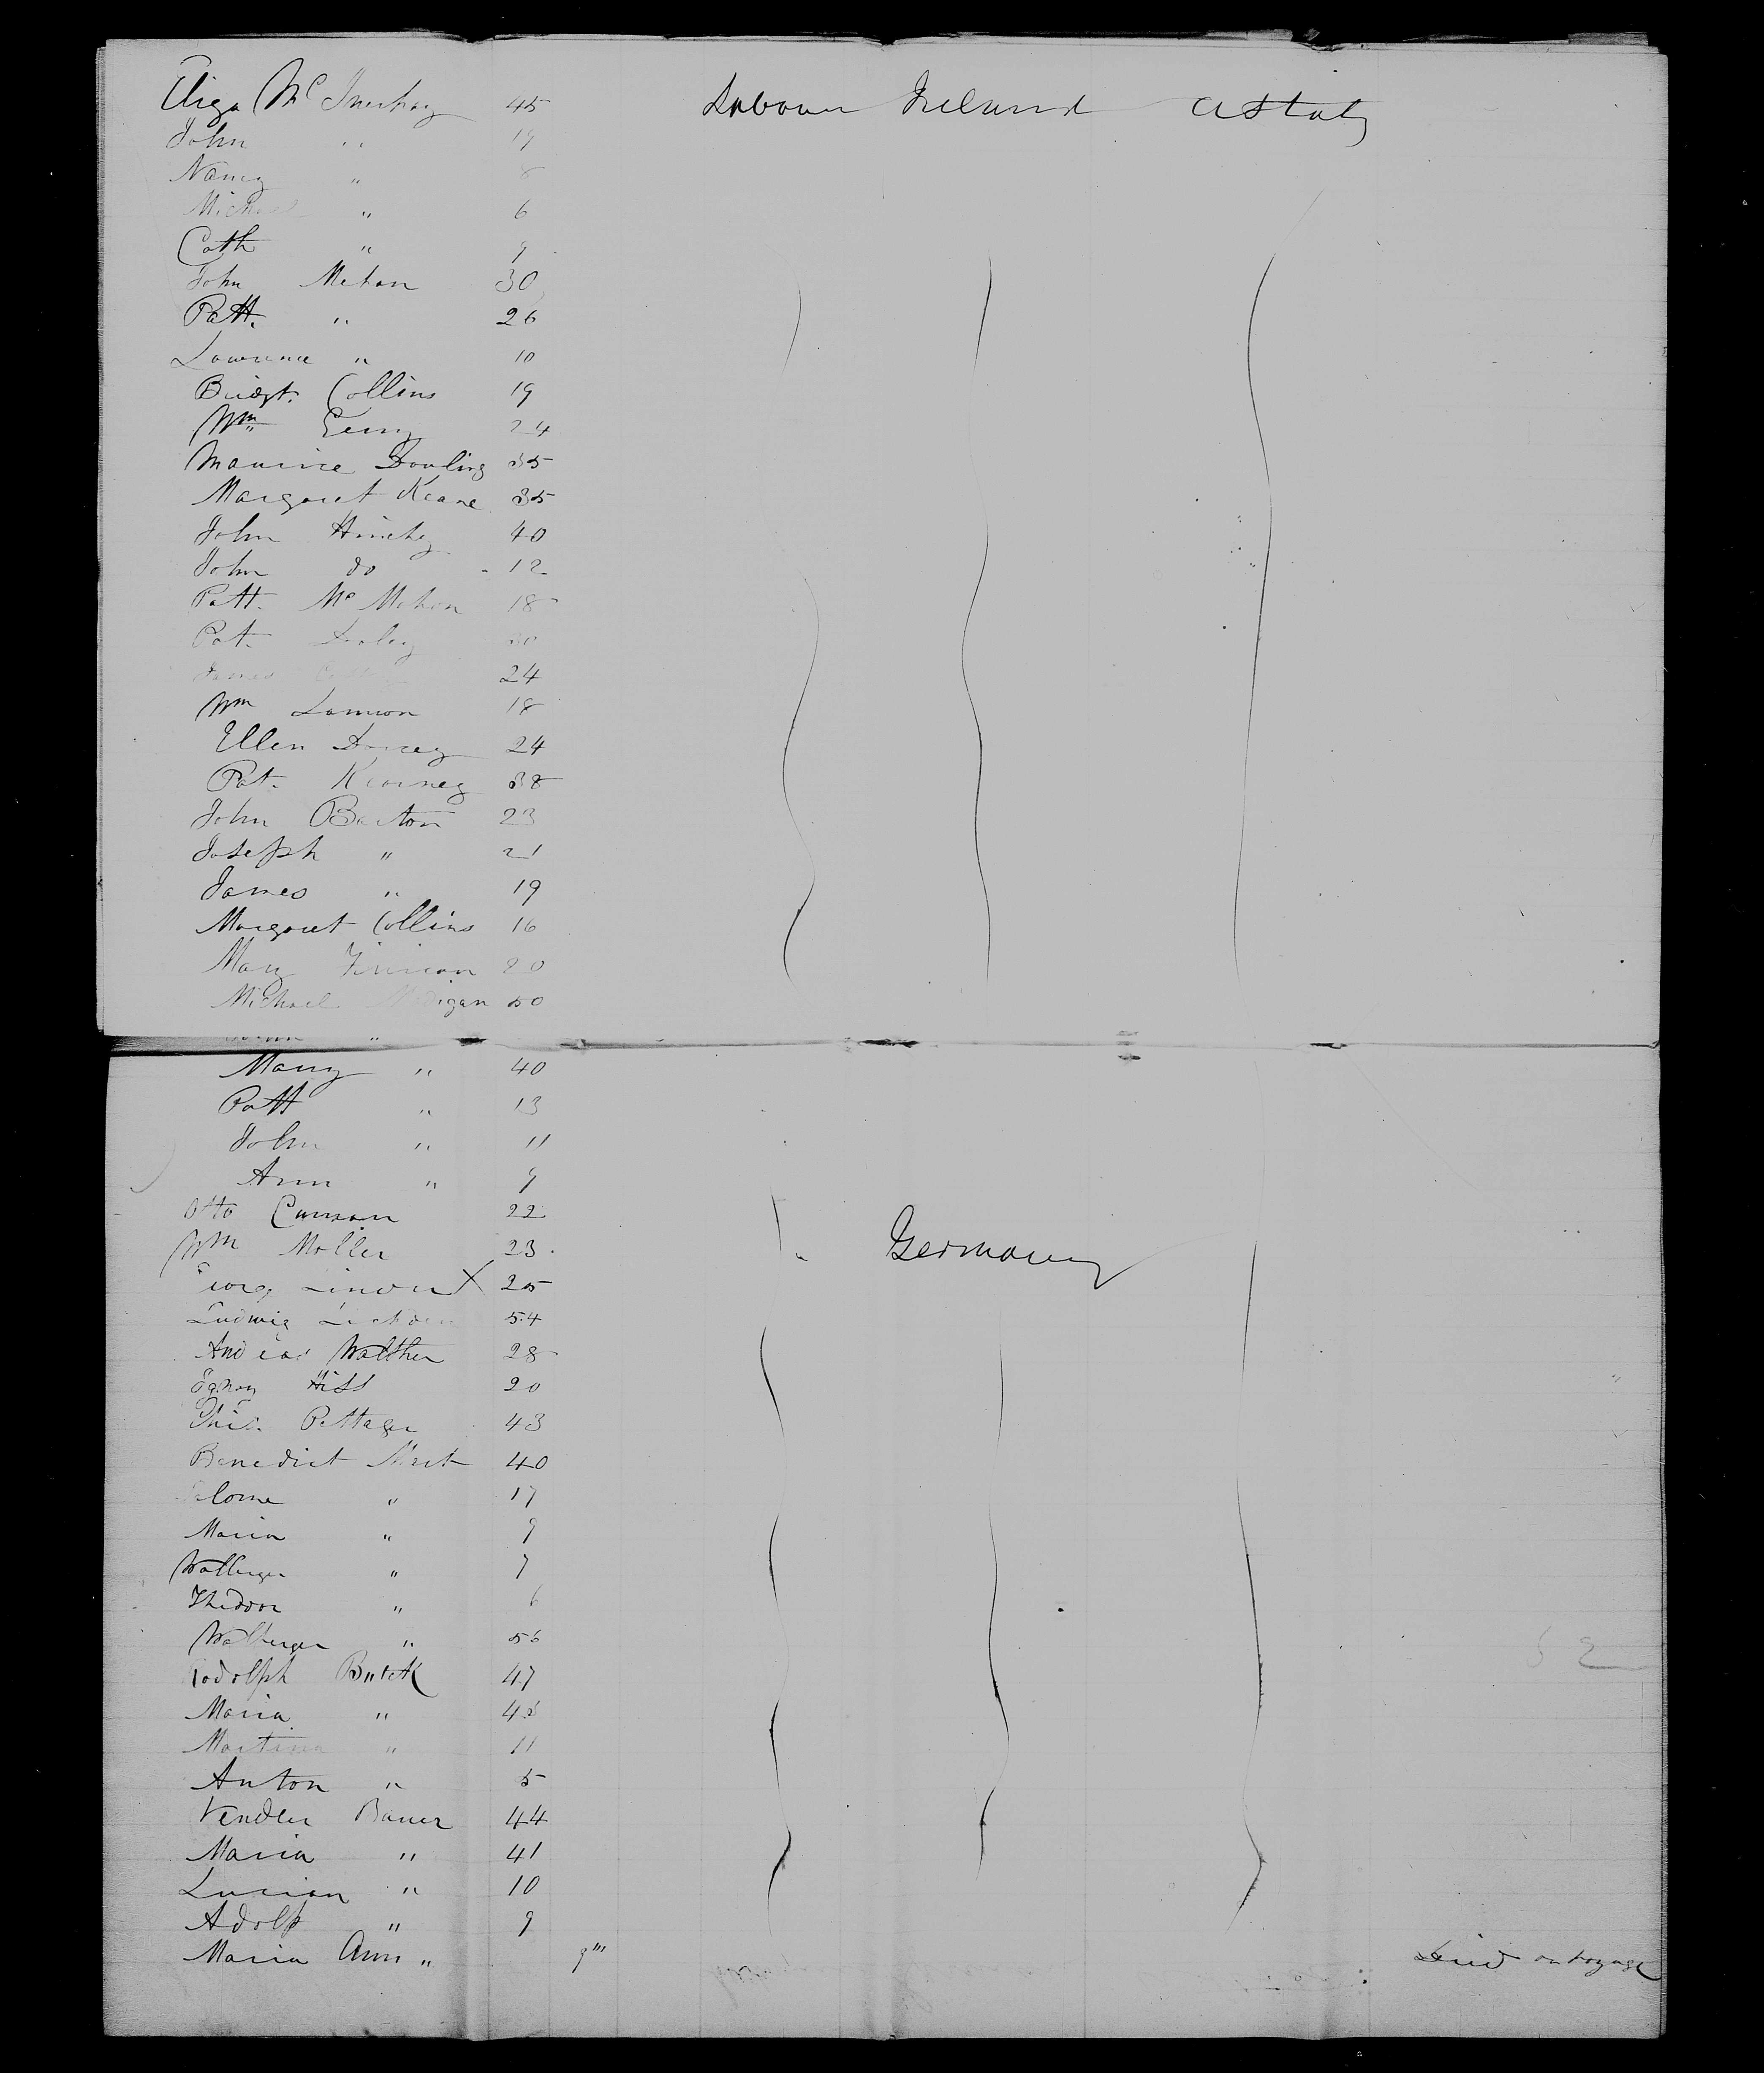 Eliza Mc Inerhay 45 Labour Ireland U States
John " 19
Nancy " 8
Michael " 6
Cath " 9
John Mehan 30
Patt. " 26
Lawrence " 10
Bridgt. Collins 19
Wm 24
Maurice Dowling 35
Margaret Keane 35
John Hinchy 40
John do 12
Patt. Mc Mahon 18
Pat. Daley 30
James 24
Wm Lannon 18
Ellen Darcey 24
Pat. Kearney 38
John Barton 23
Joseph " 21
James " 19
Margaret Collins 16
Mary Finican 20
Michael Madigan 50
"
Mary " 40
Patt " 13
John " 11
Ann " 9
Otto 22
Wm Moller 23 Germany
Georg X 25
Ludwig 54
Andreas Walther 28
Hiss 20
Chis. Pettager 43
Benedict 40
Salome " 17
Maria " 9
Walberger " 7
Theodor " 6
Walberger " 56
Rodolph Buick 47
Maria "
Martina " 11
Anton " 5
Vendler Bauer 44
Maria " 41
Lucian " 10
Adolp " 9
Maria Ann " 9''' Died on voyage